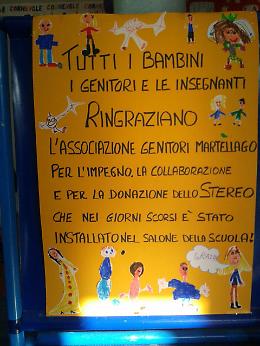 TUTTI I BAMBINI
I GENITORI E LE INSEGNANTI
RINGRAZIANO
L'ASSOCIAZIONE GENITORI MARTELLAGO
PER L'IMPEGNO, LA COLLABORAZIONE
E PER LA DONAZIONE DELLO STEREO
CHE NEI GIORNI SCORSI È STATO
INSTALLATO NEL SALONE DELLA SCUOLA!